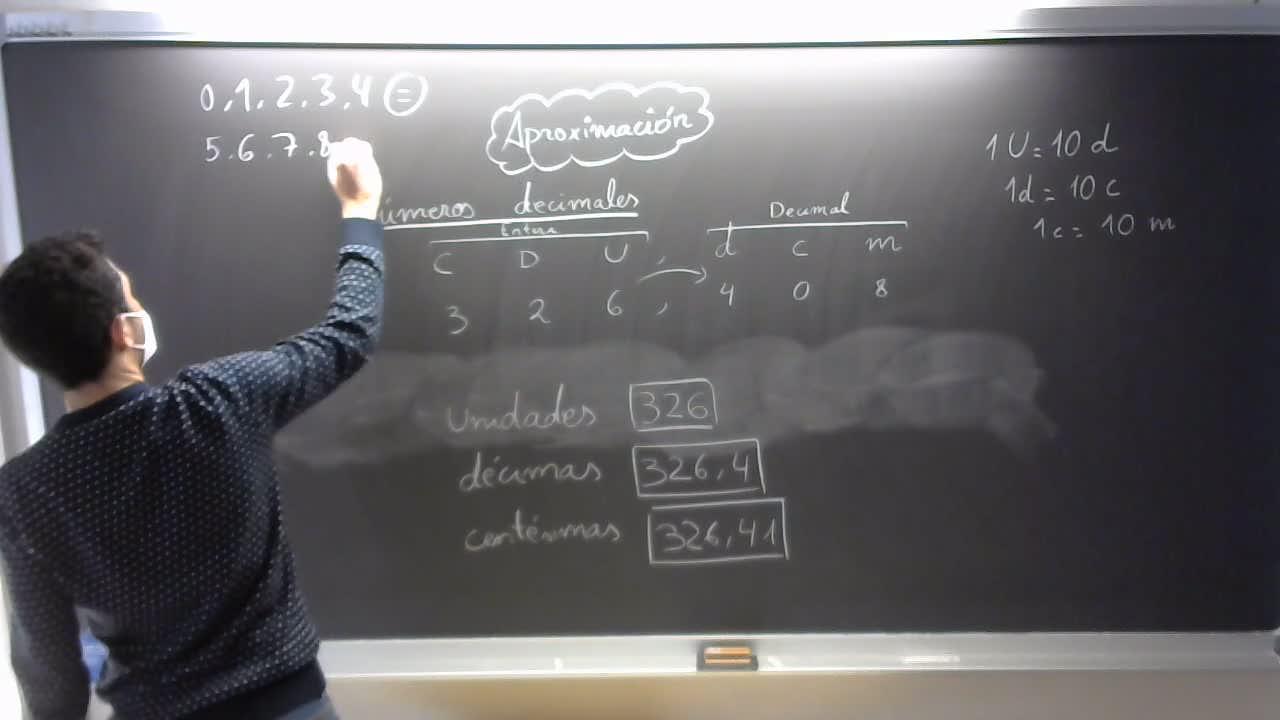 0,1,2,3,4 =
5.6.7.8
Aproximación
números decimales
Entera
Decimal
C D U , d c m
3 2 6 , 4 0 8
1U=10 d
1d = 10 c
1c = 10 m
unidades 326
décimas 326,4
centésimas 326,41